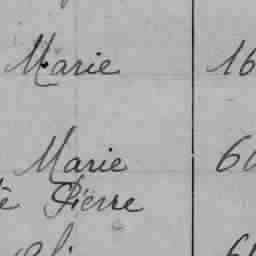 Marie 16
Marie 60
è Pierre